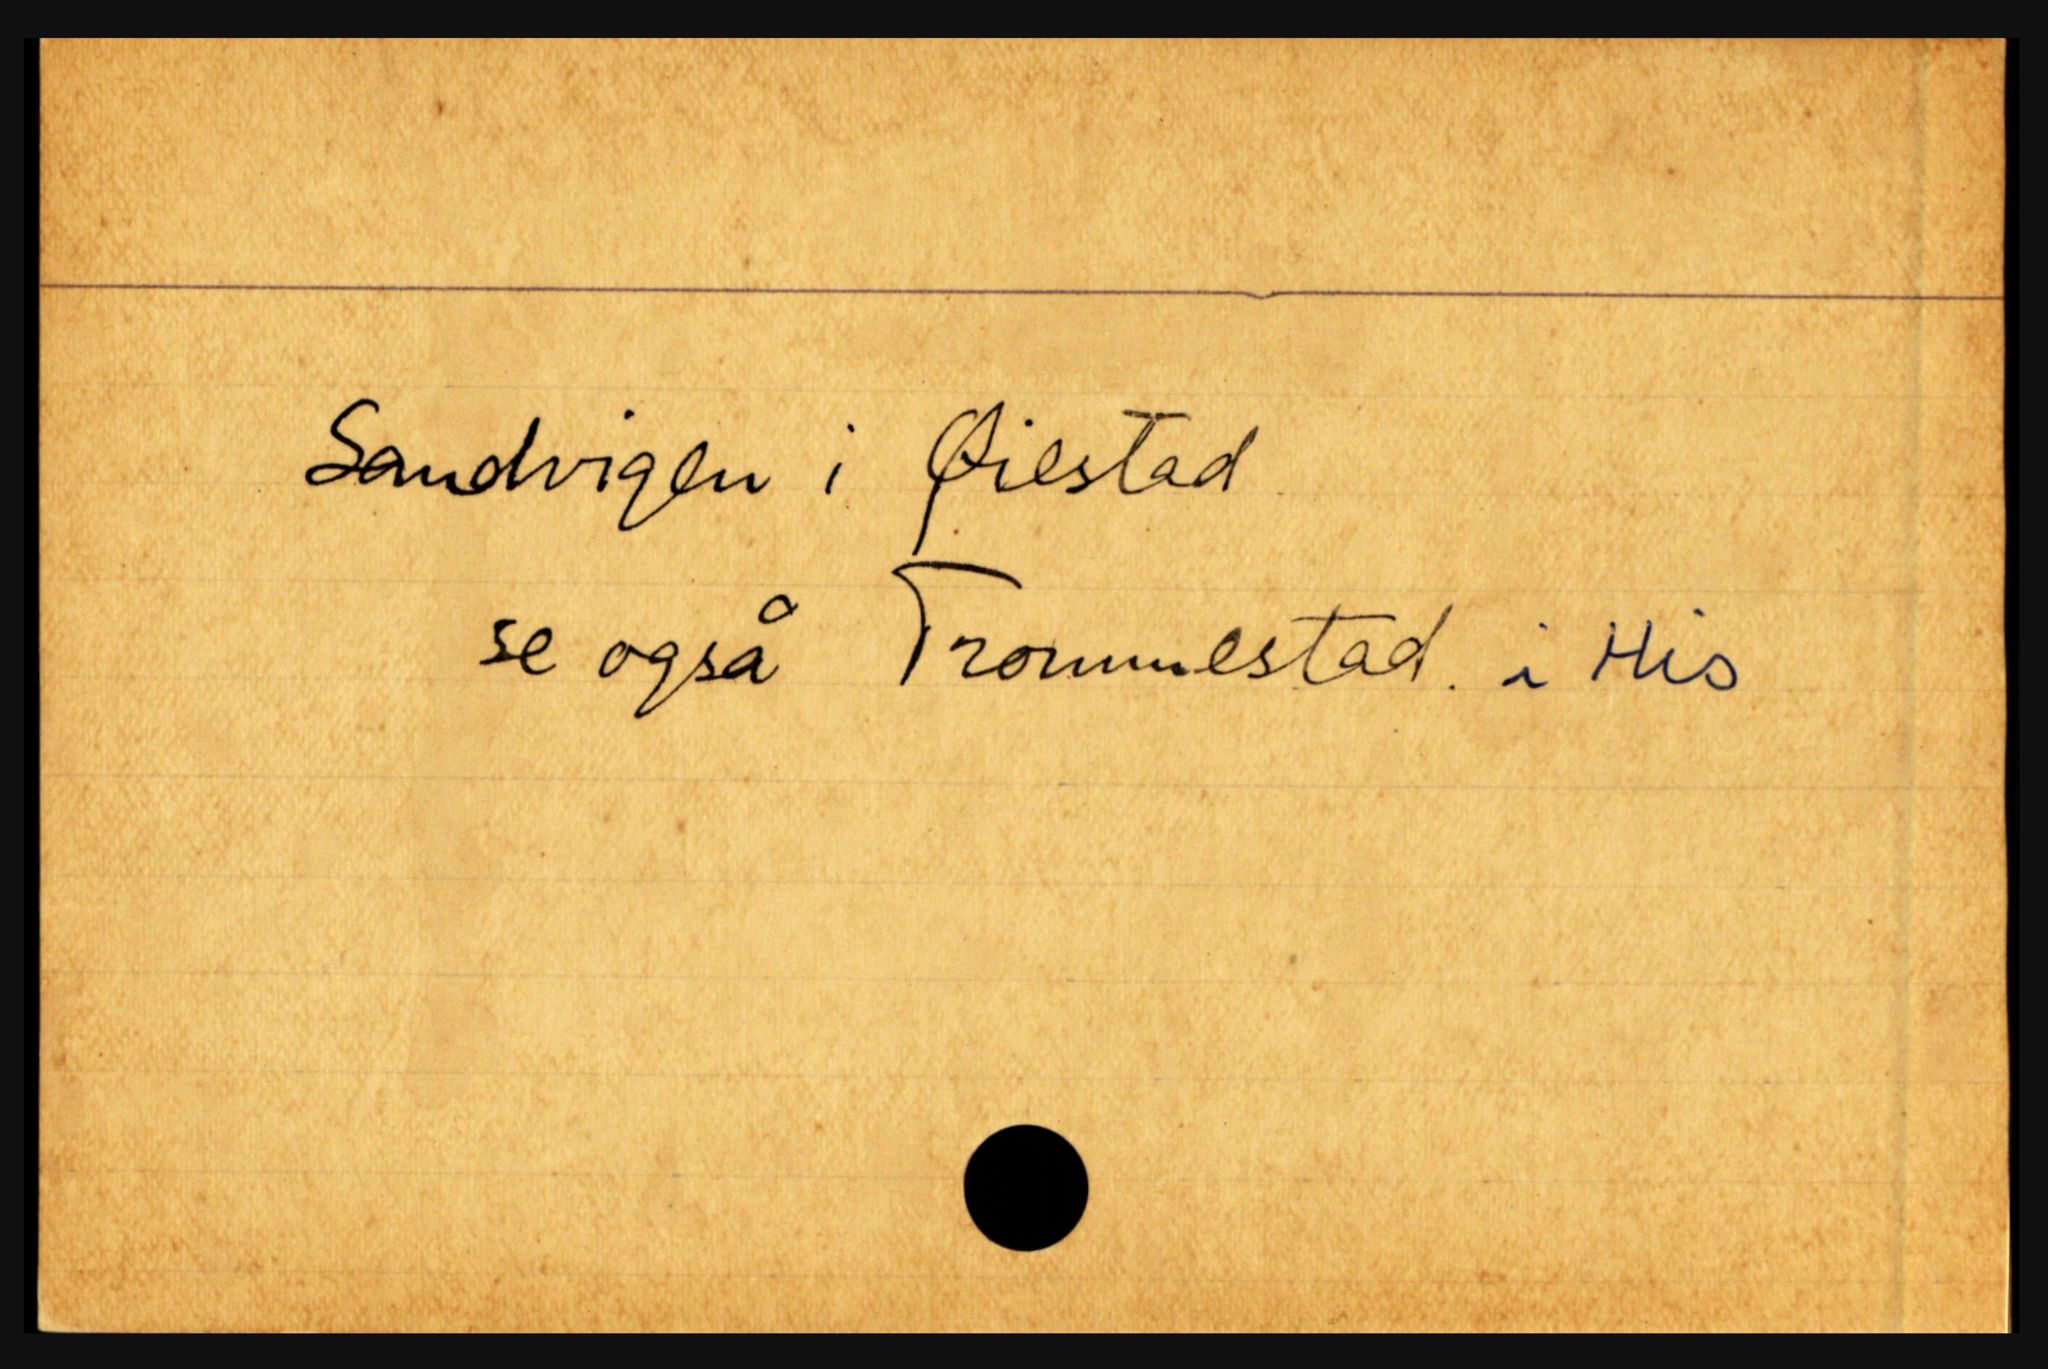 Sandvigen i Øiestad
se også Trommestad. i His